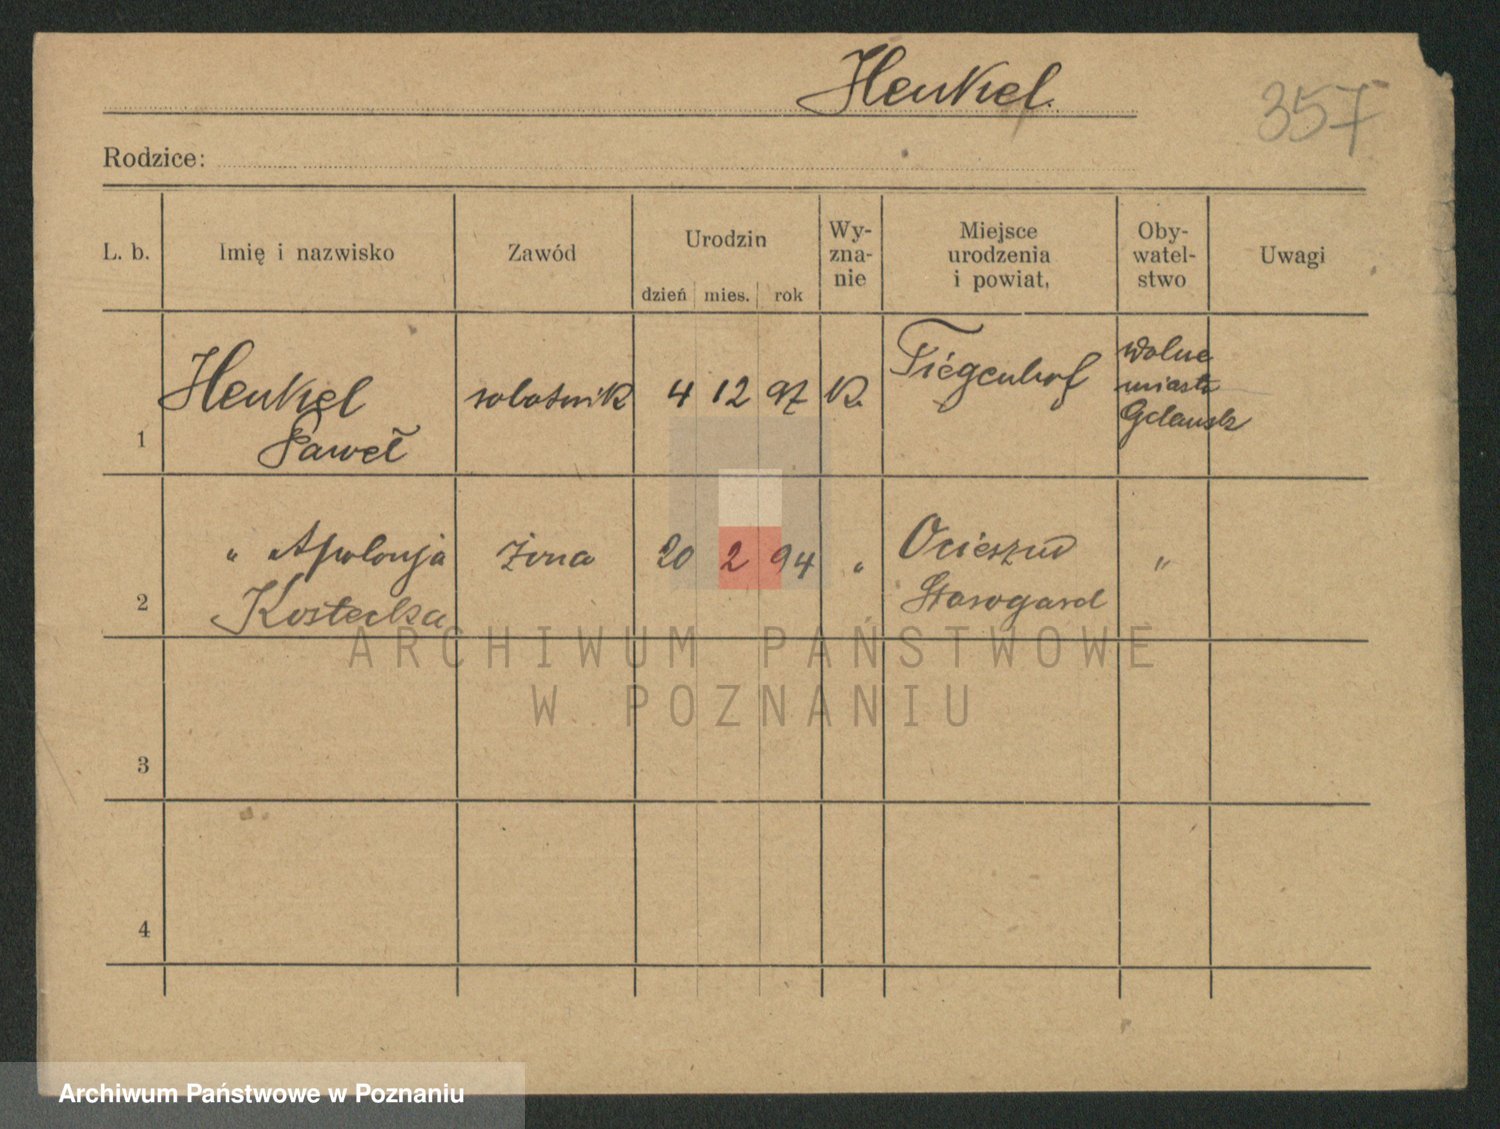 Henkel.
357
Rodzice:
L. b. Imię i nazwisko Zawód Urodzin Wy- Miejsce Oby- Uwagi
zna- urodzenia watel-
nie i powiat, stwo
dzień mies. rok
1 Henkel robotnik 4 12 97 K. Tiegenhof Wolne
miasto
Paweł Gdańsk
2 " Apolonja żona 20 2 94 " "
Kostecka Starogard
3
4
ARCHIWUM PAŃSTWOWE
W POZNANIU
Archiwum Państwowe w Poznaniu